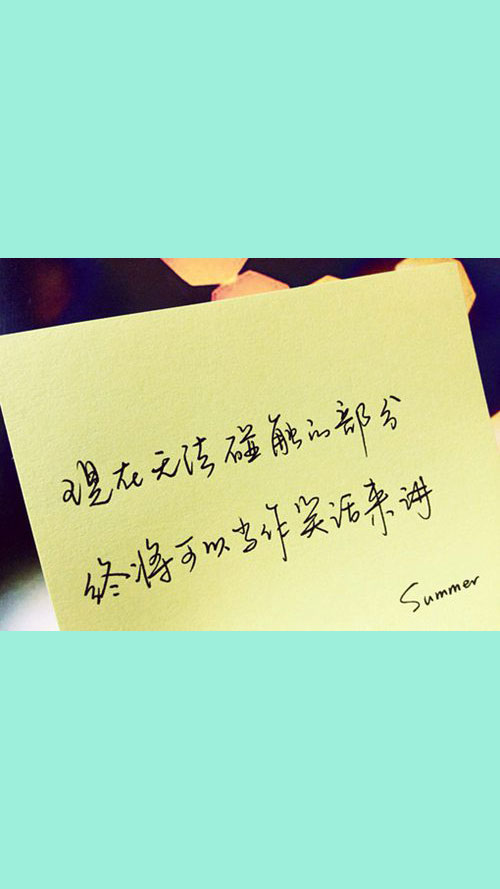 现在无法碰触的部分
终将可以当作笑话来讲
Summer